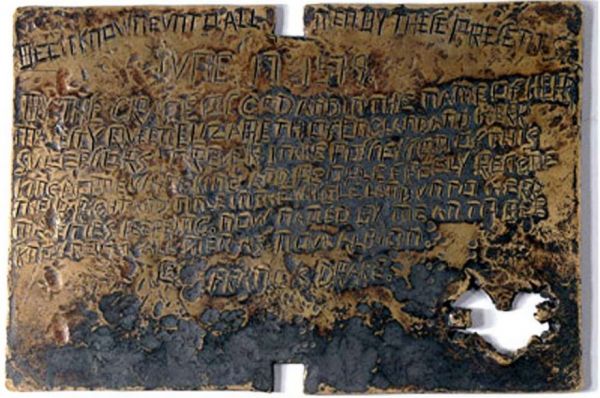 BEE IT KNOWNE VNTO ALL MEN BY THESE PRESENTS
IVNE 17 1579
BY THE GRACE OF GOD AND IN THE NAME OF HERR
MAIESTY QVEEN ELIZABETH OF ENGLAND AND HERR
SVCCESSORS FOREVER I TAKE POSSESSION OF THIS
KINGDOME WHOSE KING AND PEOPLE FREELY RESIGNE
THEIR RIGHT AND TITLE IN THE WHOLE LAND VNTO HERR
MAIESTIES KEEPING NOW NAMED BY ME AN TO BEE
KNOWNE VNTO ALL MEN AS NOVA ALBION.
FRANCIS DRAKE